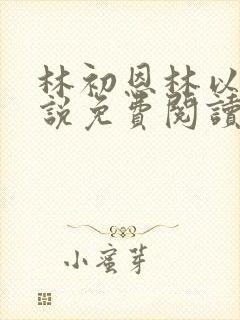 林初恩林以
說免費閱讀
小蜜芽